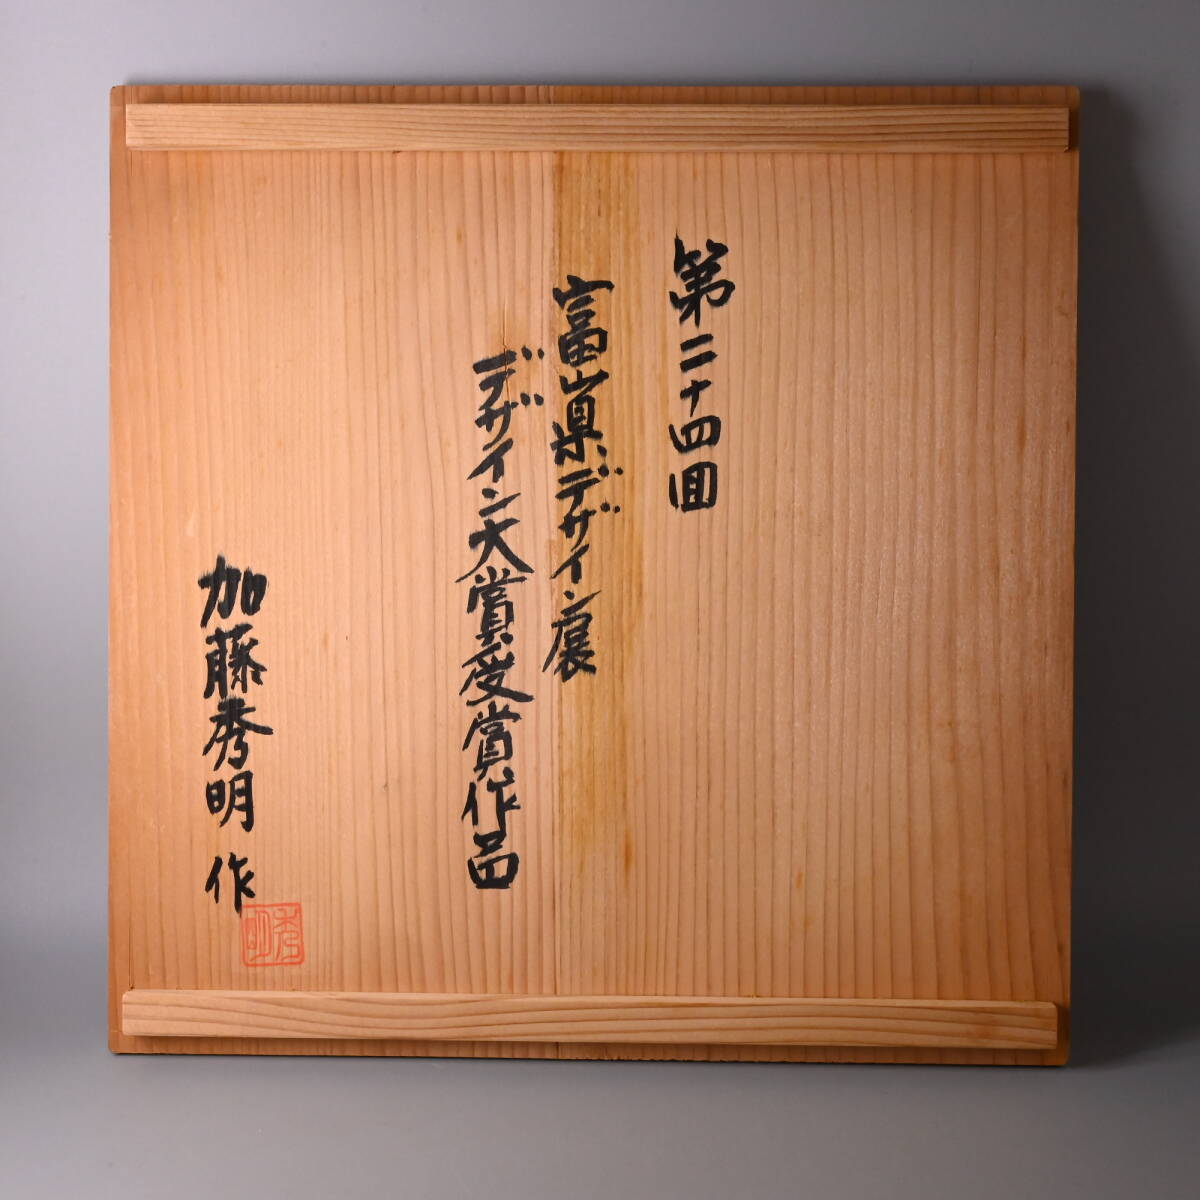 第二十四回
富山県デザイン展
デザイン大賞受賞作品
加藤秀明 作
秀明